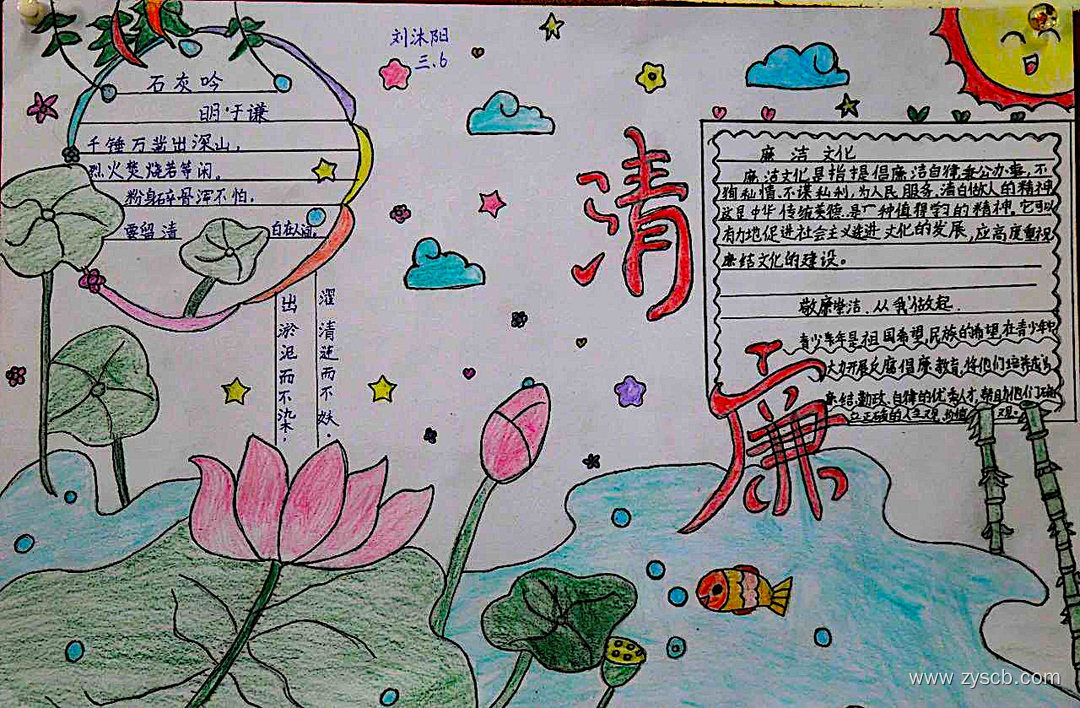 刘沐阳
三.6
石灰吟
明·于谦
千锤万凿出深山，
烈火焚烧若等闲。
粉身碎骨浑不怕，
要留清白在人间。
出淤泥而不染，
濯清莲而不妖。
清
廉
廉洁文化
廉洁文化是指提倡廉洁自律，秉公办事，不
徇私情，不谋私利，为人民服务，清白做人的精神
这是中华传统美德，是一种值得学习的精神。它可以
有力地促进社会主义先进文化的发展，应高度重视
廉结文化的建设。
敬廉崇洁，从我做起
青少年是祖国希望，民族的希望，在青少年中
大力开展反腐倡廉教育，将他们培养成为
廉结，勤政，自律的优秀人才，帮助他们
正确的人生观，价值观。
www.zyscb.com